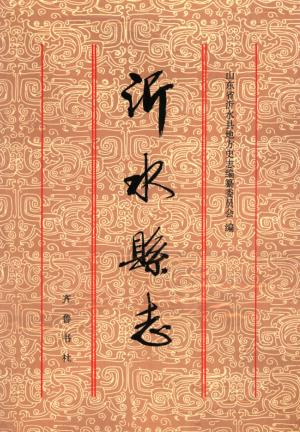 山东省沂水县地方史志编纂委员会 编
沂水縣志
齐鲁书社